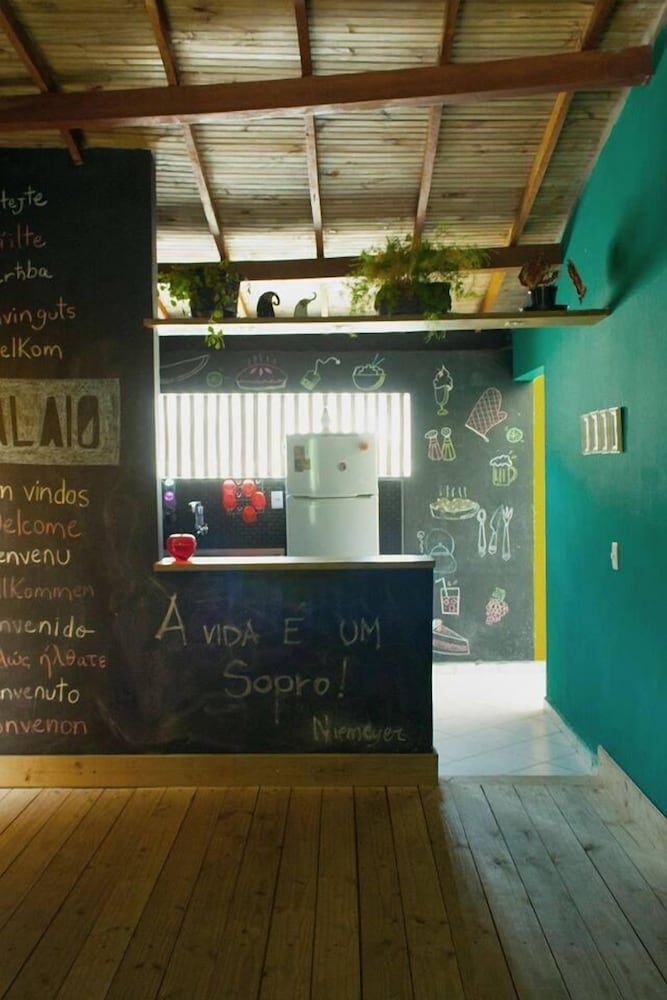 tejte
rilte
ertba
nvinguts
elKom
ALAIO
m vindos
Welcome
envenu
llKommen
nvenido
λώς ήλθατε
nvenuto
onvenon
A VIDA É UM
Sopro!
Niemeyer